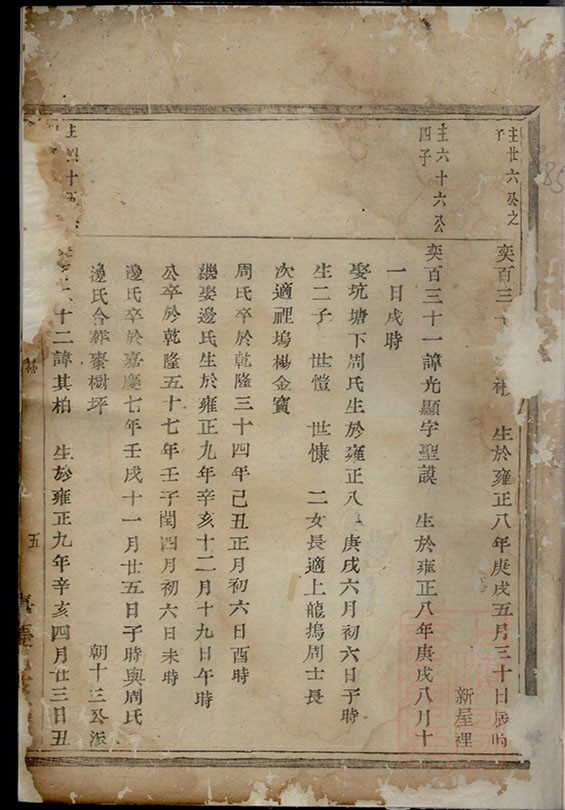 主廿六公之
子
奕百三 生於雍正八年庚戌五月三十日辰時
新屋裡
主六十六公
四子
奕百三十一諱光顯字聖謨 生於雍正八年庚戌八月十
一日戌時
娶坑塘下周氏生於雍正八 庚戌六月初六日子時
生二子 世愷 世慷 二女長適上龍塢周士長
次適裡塢楊金寶
周氏卒於乾隆三十四年己丑正月初六日酉時
繼娶邊氏生於雍正九年辛亥十二月十九日午時
公卒於乾隆五十七年壬子閏四月初六日未時
邊氏卒於嘉慶七年壬戌十一月廿五日子時與周氏
邊氏合葬棗樹坪 朝十三公派
主 十五
十二諱其柏 生於雍正九年辛亥四月廿三日丑
五
85